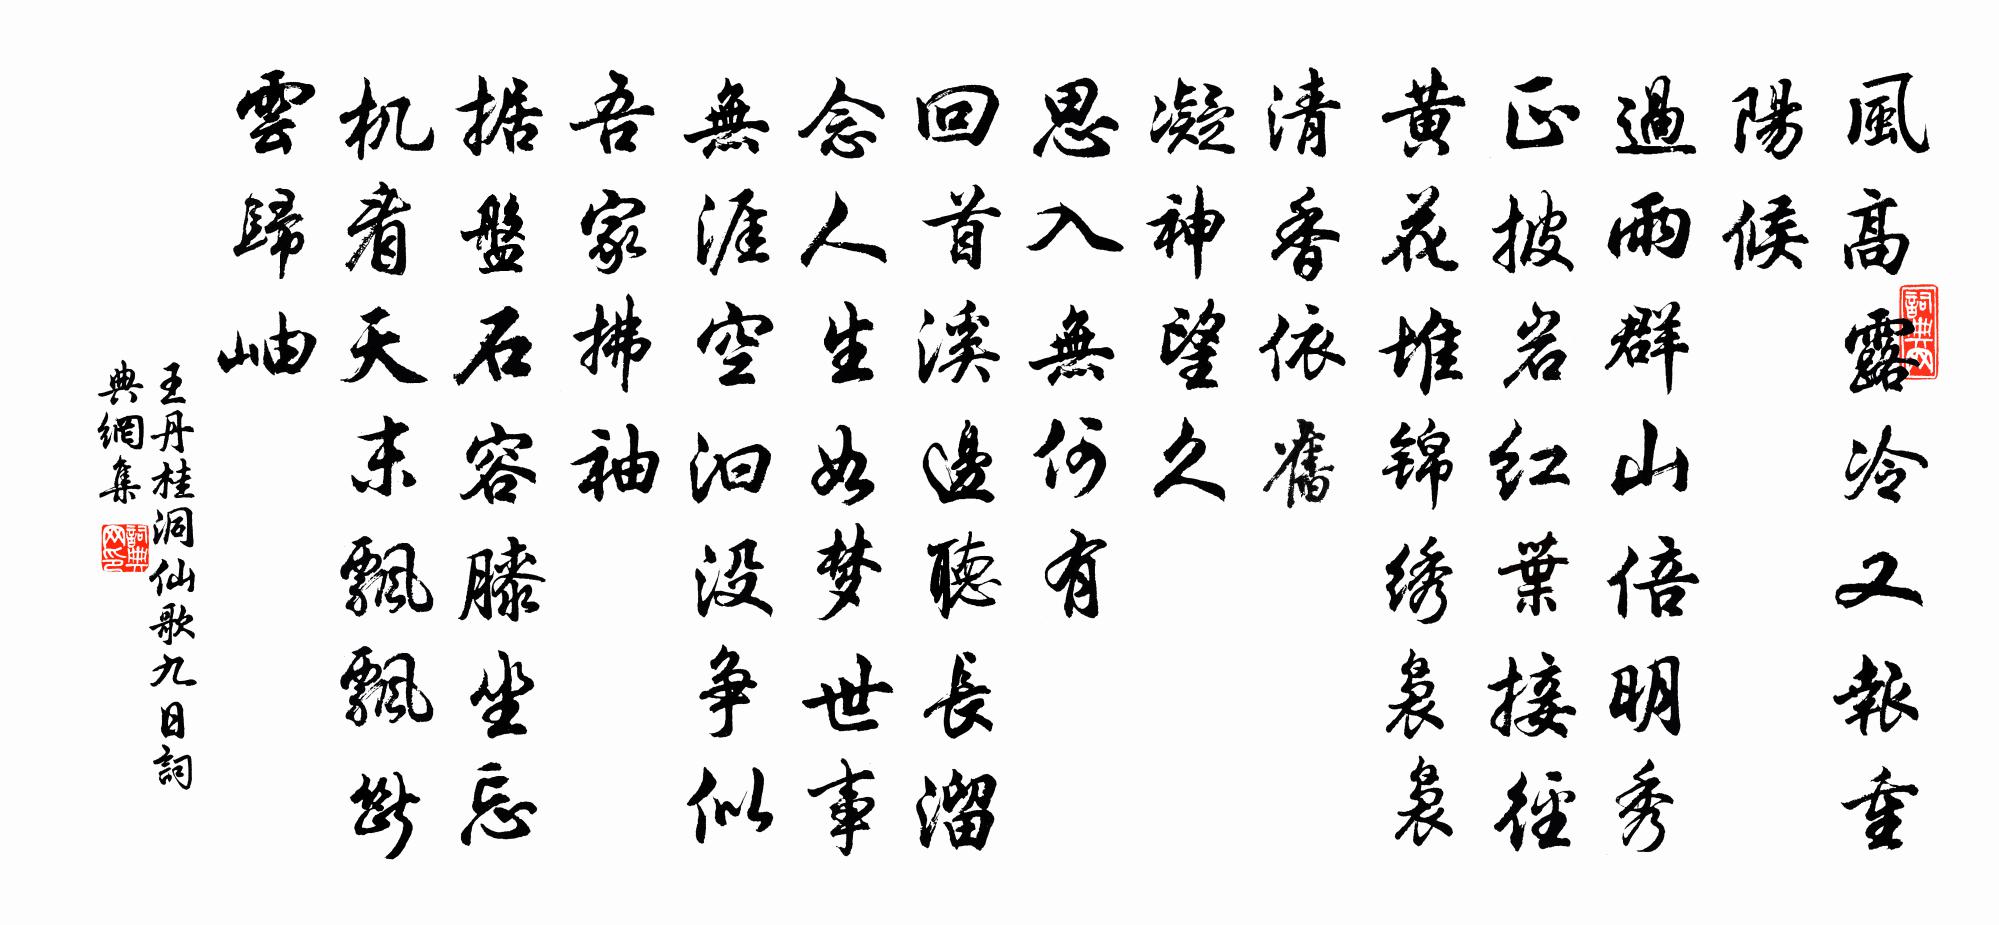 風高露冷又報重
陽候
過雨群山倍明秀
正披岩红葉接徑
黃花堆锦绣裊裊
清香依舊
凝神望久
思入無何有
回首溪邊聽長溜
念人生如梦世事
無涯空汩没争似
吾家拂袖
据盤石容膝坐忘
机看天末飄飄斷
雲歸岫
王丹桂洞仙歌九日詞
典網集
詞典网
詞典网印